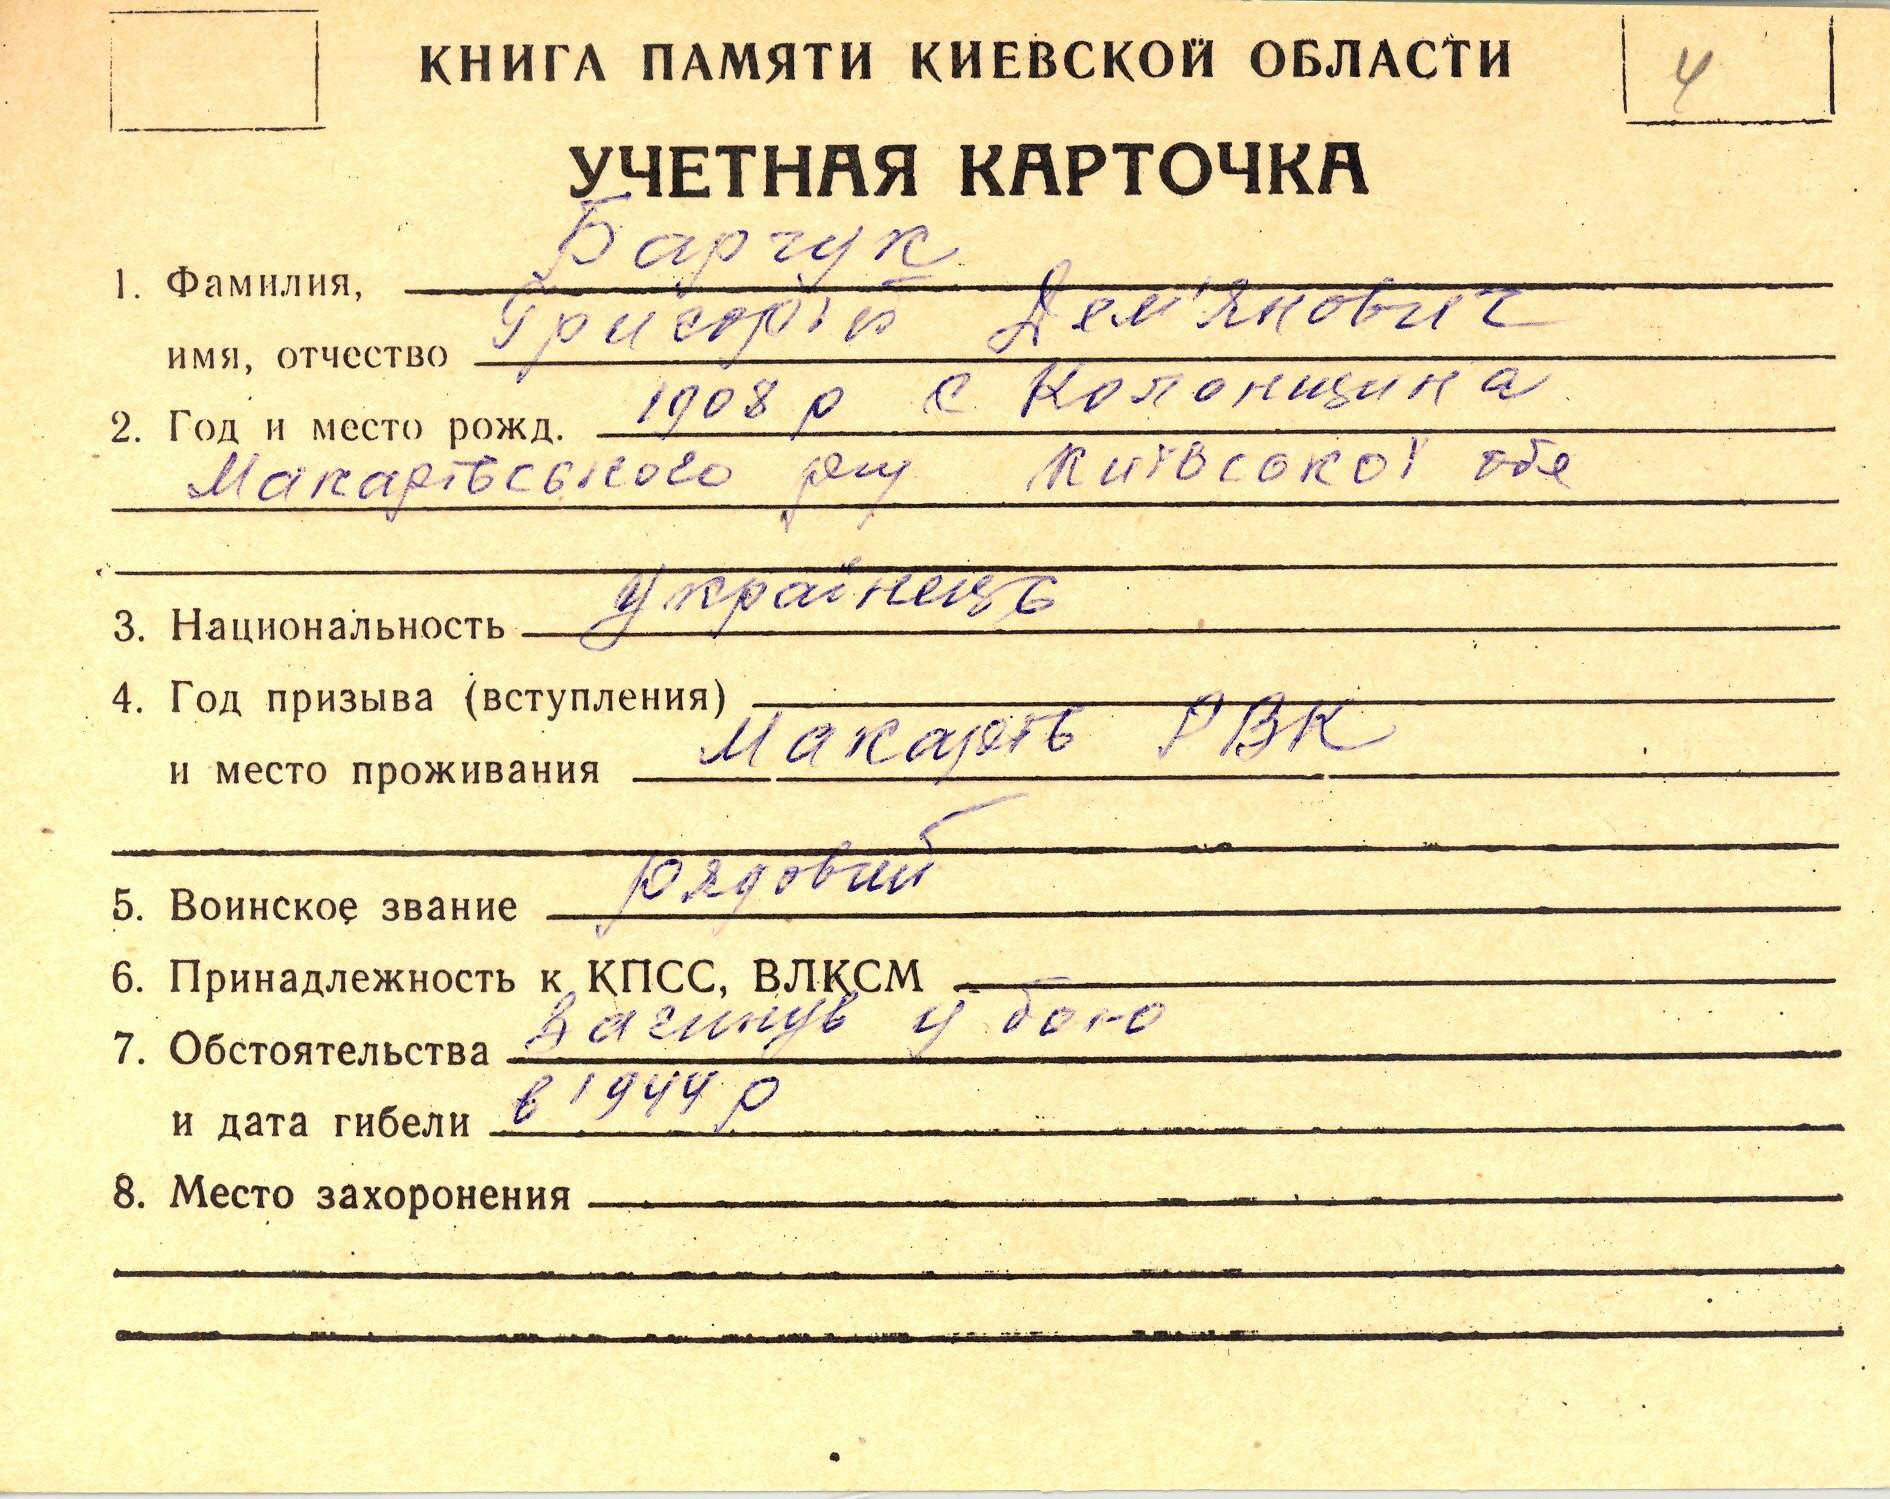 КНИГА ПАМЯТИ КИЕВСКОЙ ОБЛАСТИ
4
УЧЕТНАЯ КАРТОЧКА
1. Фамилия, Барчук
имя, отчество Григорій Дем'янович
2. Год и место рожд. 1908 р с Колонщина
Макарівського р-ну Київської обл
3. Национальность Українець
4. Год призыва (вступления)
и место проживания Макарів РВК
5. Воинское звание рядовий
6. Принадлежность к КПСС, ВЛКСМ
7. Обстоятельства Загинув у бою
и дата гибели в 1944 р
8. Место захоронения